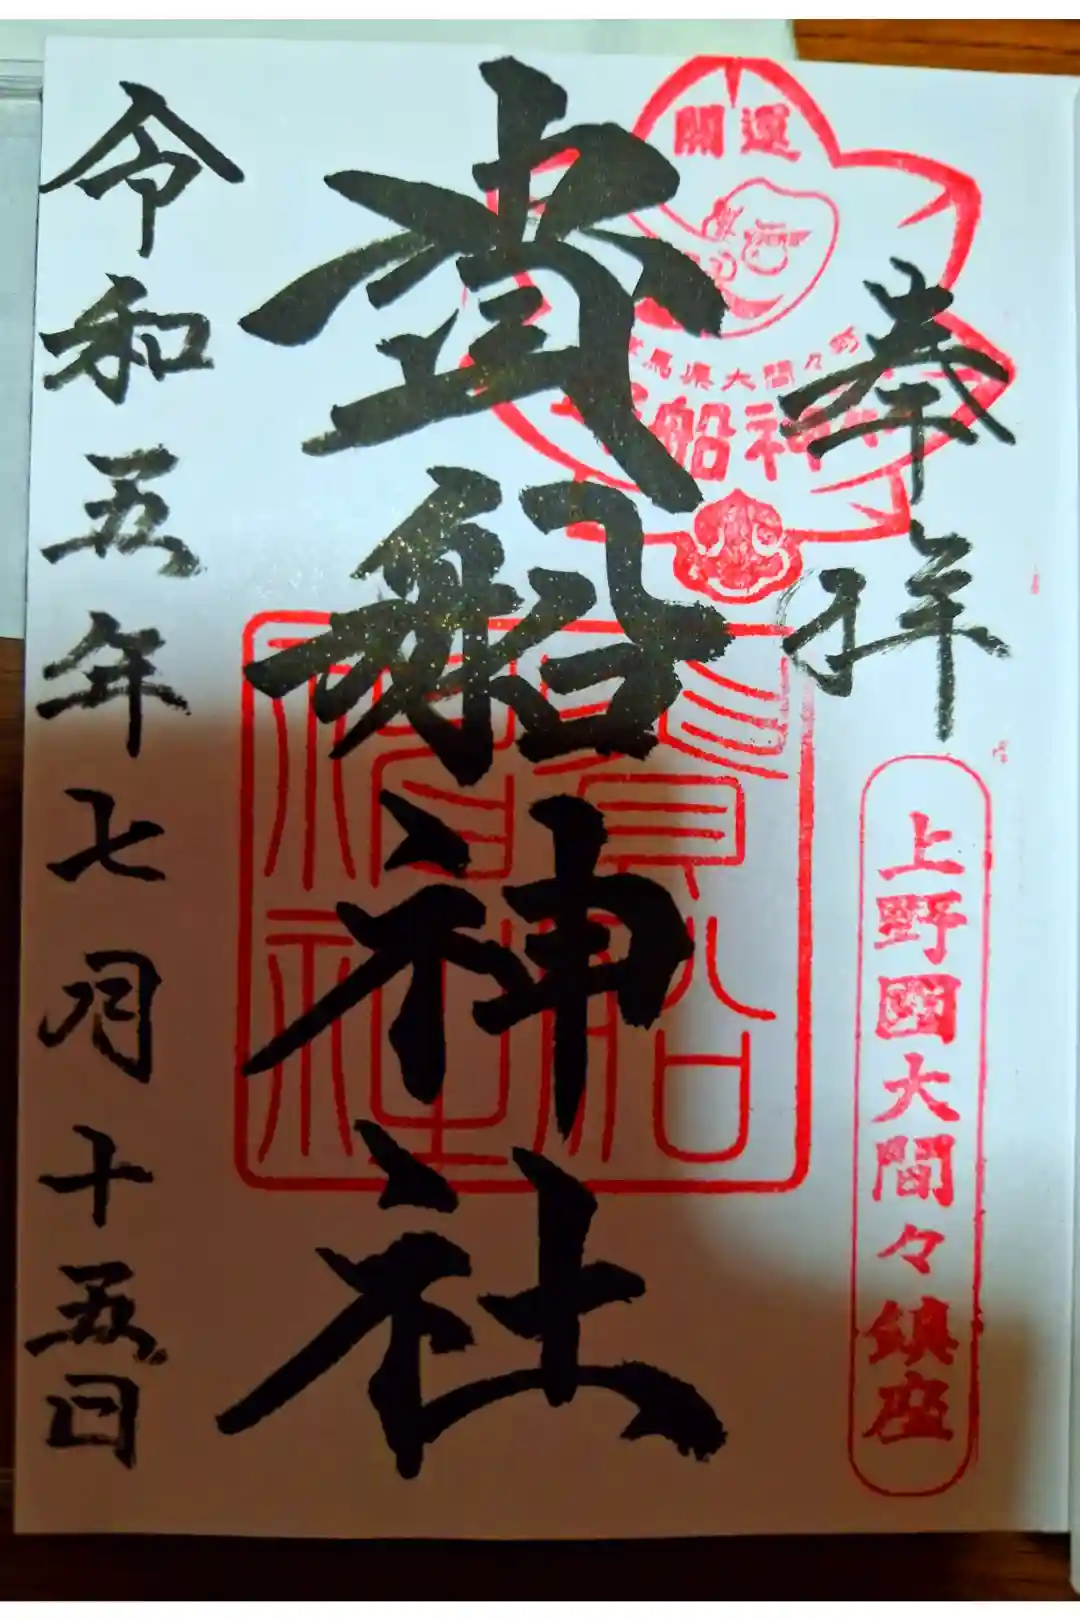 奉拝
上野國大間々鎮座
開運
馬県大間々町
船神社
貴船神社
貴船神社
令和五年七月十五日